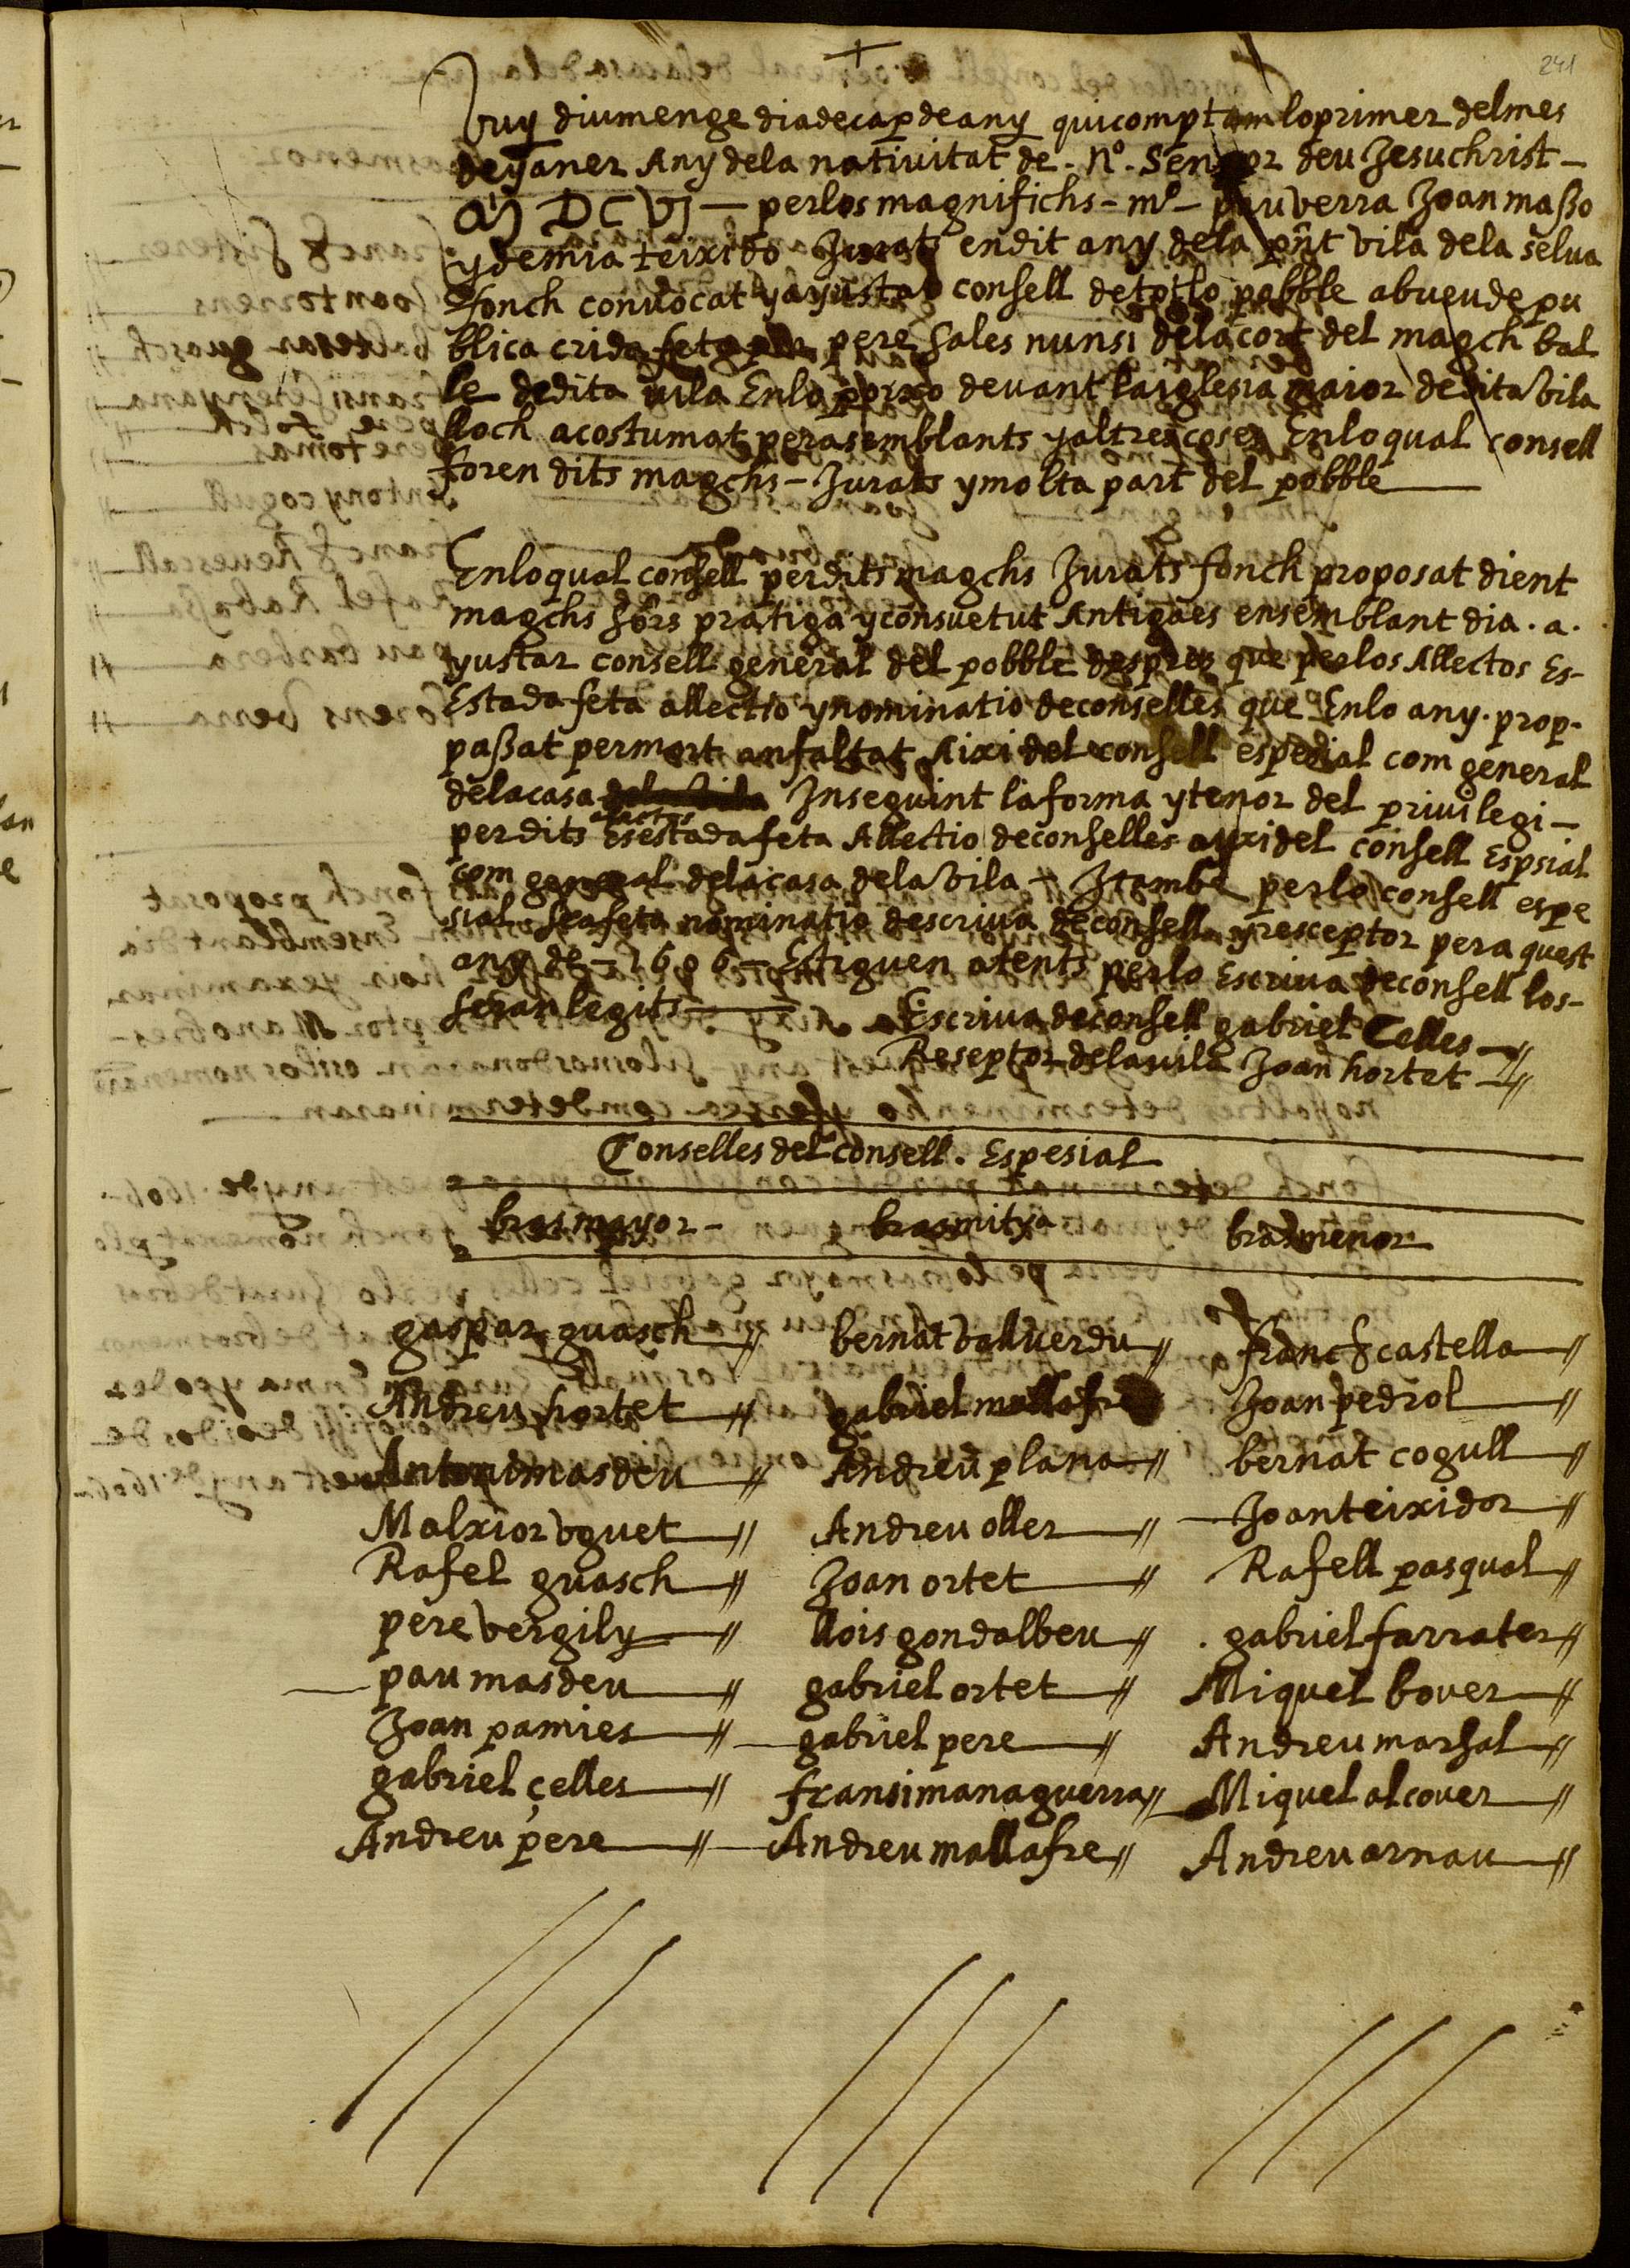 241
Vuy diumenge dia de cap de any qui comptam lo primer del mes
de yaner Any dela nativitat de - nº - Senyor deu Jesuchrist -
M DC VJ - per los magnifichs - mº - pau verra Joan maßo
y demia teixido Jurats en dit any dela pñt vila dela selua
ffonch convocat y ayustat consell de tot lo pobble ab veu de pu
blica crida feta per pere sales nunsi dela cort del magch bal
le de dita vila En lo porxo devant la iglesia maior de dita vila
lloch acostumat per a semblants y altres coses En lo qual consell
foren dits magchs - Jurats y molta part del pobble
En lo qual consell per dits magchs Jurats fonch proposat dient
magchs sors pratiga y consuetut Antiga es en semblant dia . a .
yustar consell general del pobble despres que per los Allectos Es-
Estada feta allectio y nominatio de conselles que En lo any . prop -
paßat per mort an faltat Aixi del consell espesial com general
dela casa dela vila Inseguint la forma y tenor del privilegi -
per dits alactos es estada feta Allectio de conselles axi del consell Espsial
com general dela casa dela vila - Itambe per lo consell espe
sial sea feta nominatio de scriva de consell y resceptor per a quest
any de - 1606 - Estiguen atents per lo Escriva de consell los -
seran legits - Escriva de consell gabriel Celles
Reseptor dela vila Joan hortet
Conselles del consell . Espesial
bras mayor - bras mitya bras menor
gaspar guasch bernat vallverdu franch castella
Andreu hortet gabriel mallafre Joan pedrol
Antoni masdeu Andreu plana bernat cogull
Malxior vguet Andreu oller Joan teixidor
Rafel guasch Joan ortet Rafell pasqual
pere vergily llois gondalbeu gabriel farrater
pau masdeu gabriel ortet Miquel bover
Joan pamies gabriel pere Andreu marsal
gabriel çelles fransi managuerra Miquel alcover
Andreu pere Andreu mallafre Andreu arnau